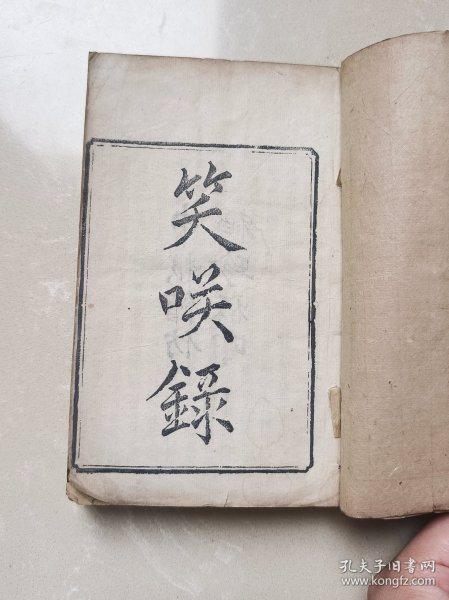 笑咲錄
孔夫子旧书网
www.kongfz.com